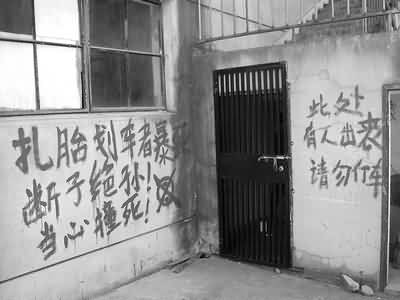 扎胎划车者暴死
断子绝孙!
当心撞死!
此处
有人出丧
请勿仃车